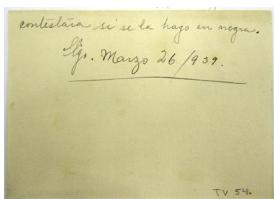 contestára si se la hago en negra.
Stgo. Marzo 26/939.
TV 54.